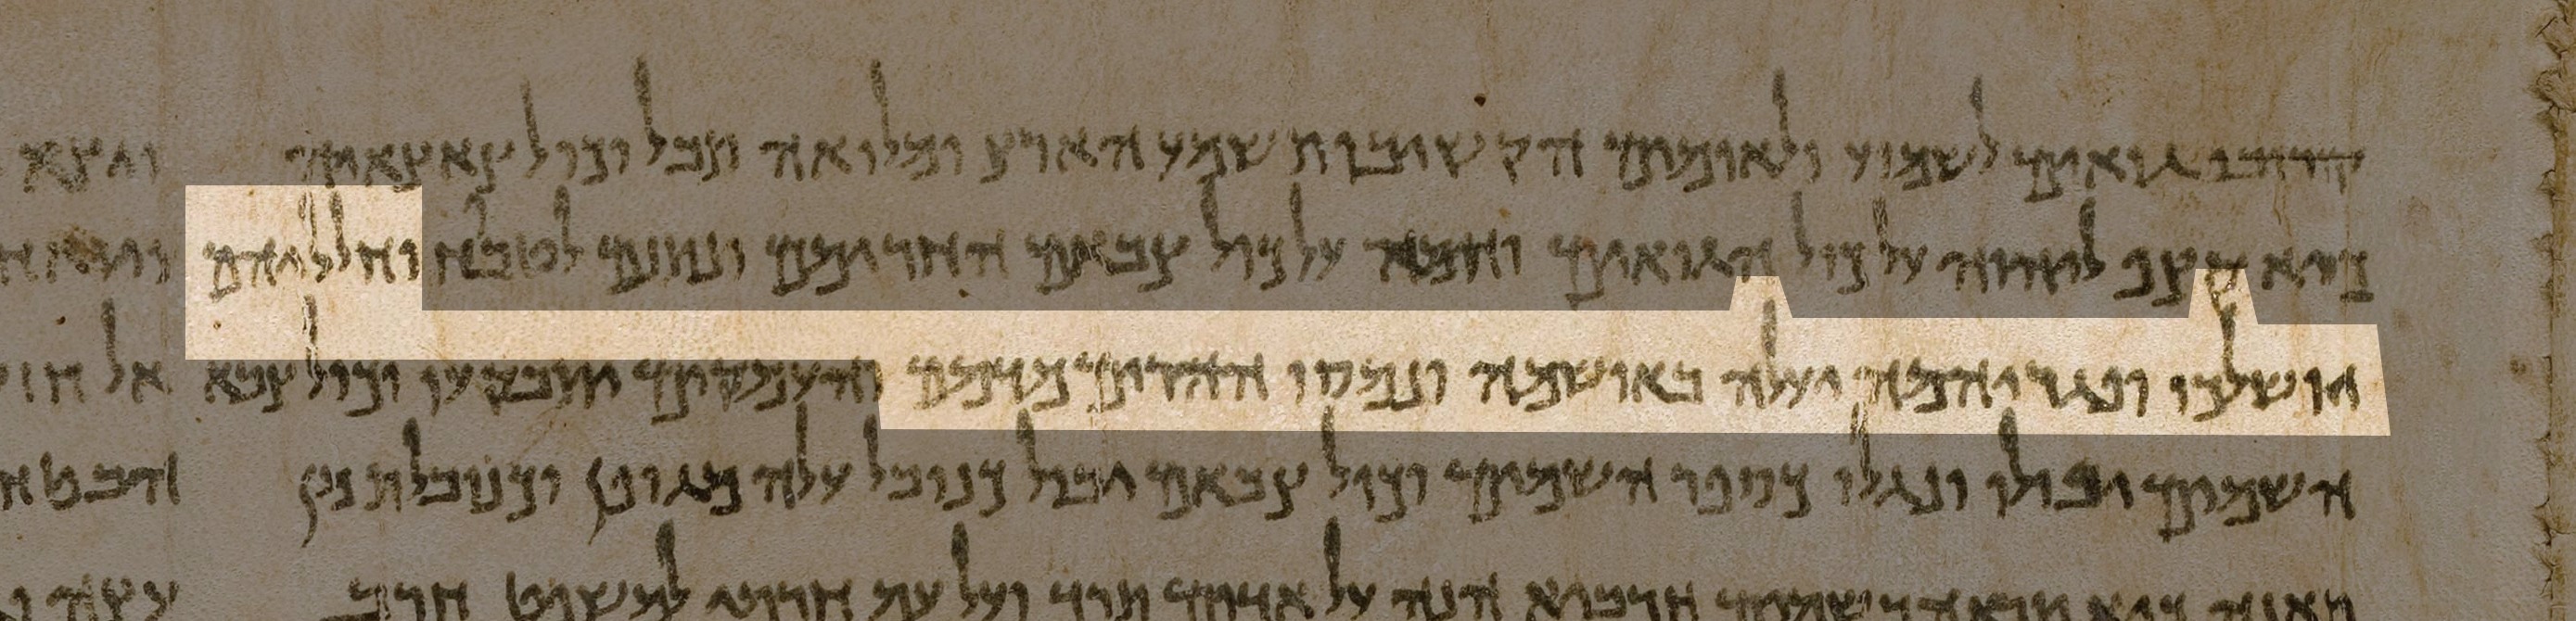 קרובו גואים לשמוע ולאומים הקשיבו תשמע הארץ ומלואה תבל וכול צאצאיה
כיא קצף ליהוה על כול הגואים וחמה על כול צבאם החרימם ונתנם לטבח וחלליהם
יושלכו ופגריהמה יעלה באושמה ונמסו ההרים מדמם והעמקים יתבקעו וכול צבא
השמים יפולו ונגלו כספר השמים וכול צבאם יבול כנובל עלה מגופן וכנובלת מן
תאנה כיא תראה בשמים חרבי הנה על אדום תרד ועל עם חרמי למשפט חרב